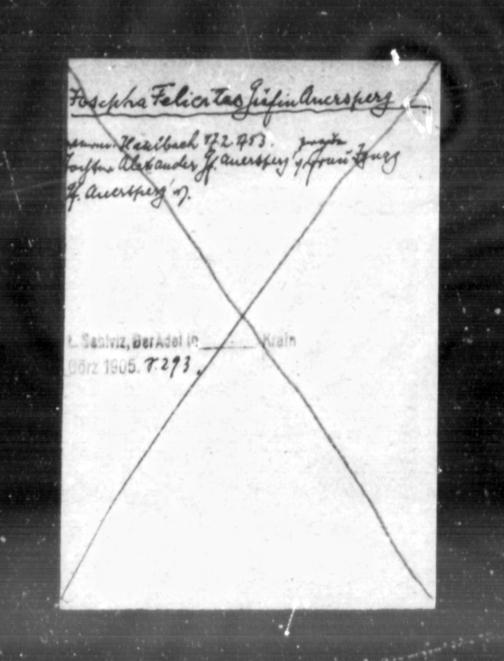 Josepha Felicitas Gräfin Auersperg
Haribach 17.2.753.
Tochter Alexander Gf. Auersperg
Gf. Auersperg
L. Schiviz, Der Adel in Krain
Görz 1905. S. 293.